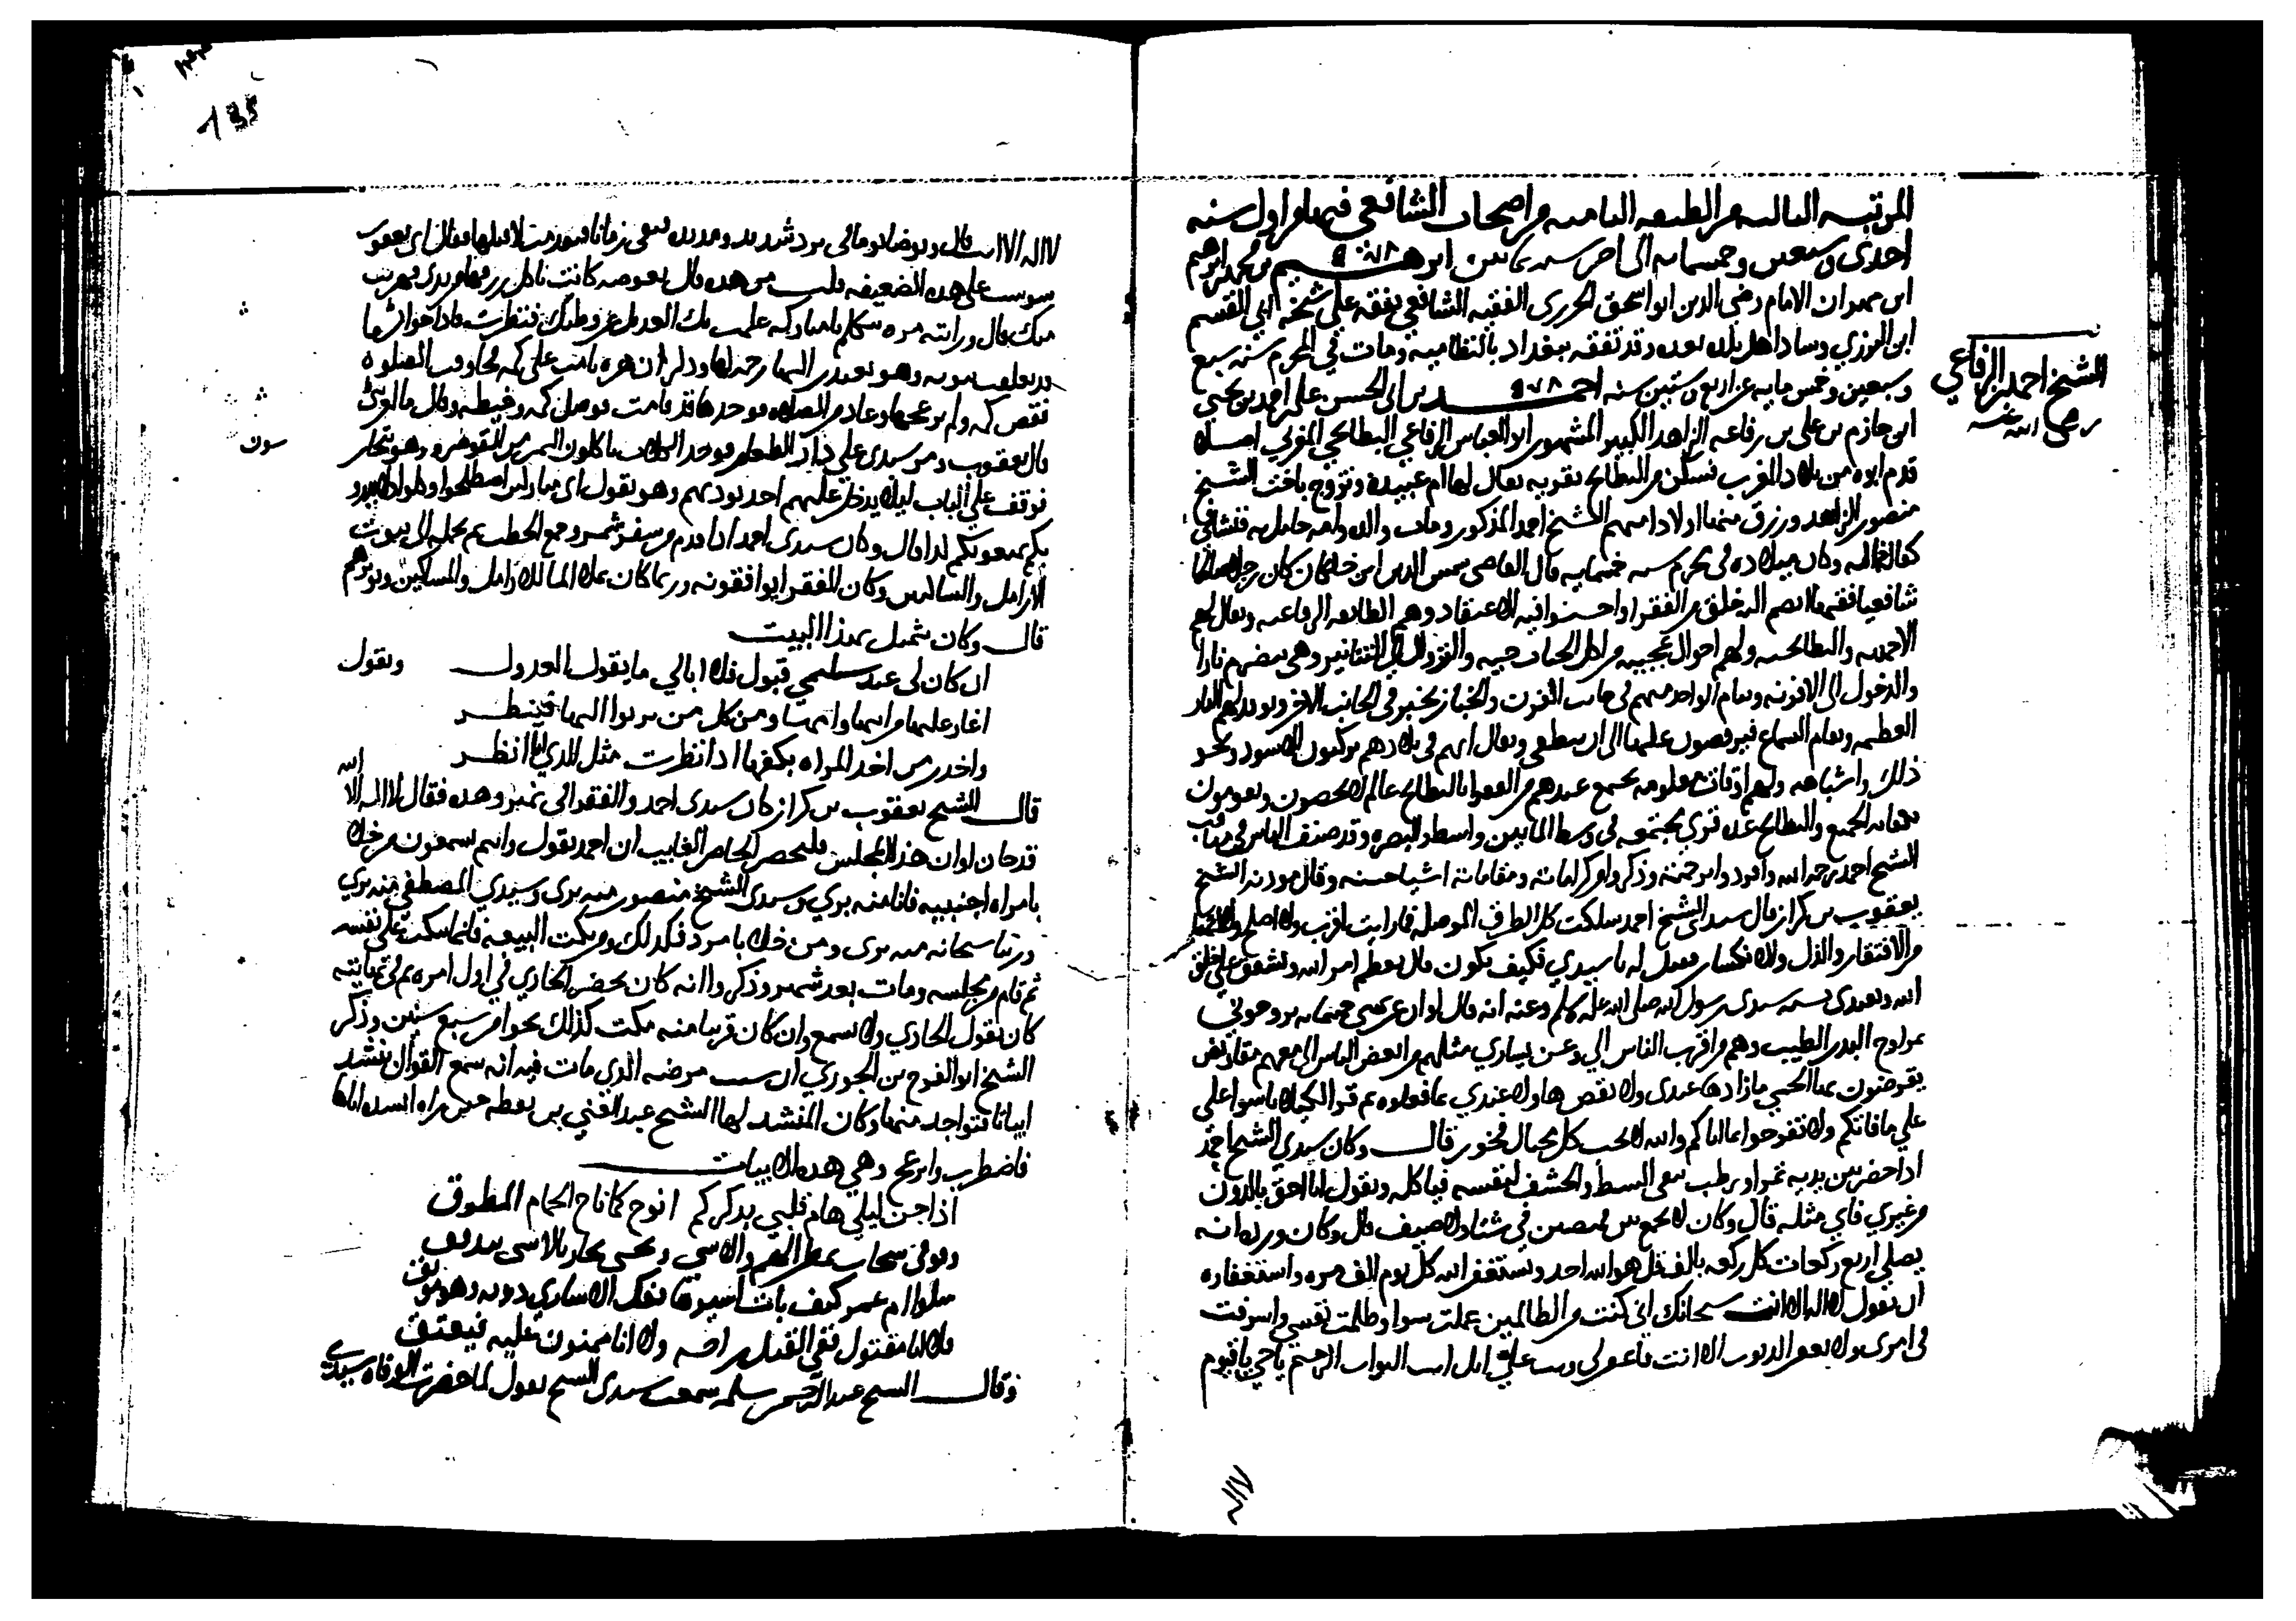 المرتبه الثالثه من الطبقه الثامنه من اصحاب الشافعي فيها من اول سنه
احدى وسبعين وخمسمايه الى اخر سنه ثمانين ابرهيم بن محمد بن ابرهيم
ابن مهران الامام رضي الدين ابو اسحق الجزرى الفقيه الشافعي تفقه على شيخه ابي القسم
ابن البزري وساد اهل بلده بعده وقد تفقه ببغداد بالنظاميه ومات في المحرم سنه سبع
وسبعين وخمس مايه عن اربع وستين سنه احمد بن ابي الحسن علي بن احمد بن يحيى
ابن حازم بن على بن رفاعه الزاهد الكبير المشهور ابو العباس الرفاعي البطايحي المغربي اصله
قدم ابوه من بلاد المغرب فسكن من البطايح بقريه يقال لها ام عبيده وتزوج باخت الشيخ
منصور الزاهد ورزق منها اولادا منهم الشيخ احمد المذكور ومات والده وامه حامل به فنشا في
كفالة خاله وكان ميلاده في محرم سنه خمسمايه قال القاضي شمس الدين ابن خلكان كان رجلا صالحا
شافعيا فقيها انضم اليه خلق من الفقرا واحسنوا فيه الاعتقاد وهم الطايفه الرفاعيه ويقال لهم
الاحمديه والبطايحيه ولهم احوال عجيبه من اكل الحيات حيه والنزول الى التنانير وهي تضرم نارا
والدخول الى الافرنه وينام الواحد منهم في جانب الفرن والخباز يخبز في الجانب الاخر ويوقد لهم النار
العظيمه ويقام السماع فيرقصون عليها الى ان تنطفي ويقال انهم في بلادهم يركبون الاسود ونحو
ذلك واشباهه ولهم اوقات معلومه يجتمع عندهم من الفقرا بالبطايح عالم لا يحصون ويقومون
بكفاية الجميع والبطايح عده قرى مجتمعه في وسط الما بين واسط والبصره وقد صنف الناس في مناقب
الشيخ احمد رحمه الله وافردوا ترجمته وذكروا من كراماته ومقاماته اشيا حسنه وقال مودنه الشيخ
يعقوب بن كراز قال سيدى الشيخ احمد سلكت كل الطرق الموصله فما رايت اقرب ولا اصلح
من الافتقار والذل والانكسار فقيل له يا سيدي فكيف يكون قال تعظم امر الله وتشفق على خلق
الله وتقتدى بسنه سيدى رسول الله صلى الله عليه وسلم وعنه انه قال لو ان عن يميني خمسمايه يروحوني
بمراوح الند والطيب وهم من اقرب الناس الي وعن يساري مثلهم من ابغض الناس الي معهم مقاريض
يقرضون بها لحمي ما زاد هاولا عندى ولا نقص هاولا عندي بما فعلوه ثم قرا لكيلا تاسوا على
على ما فاتكم ولا تفرحوا بما اتاكم والله لا يحب كل مختال فخور قال وكان سيدي الشيخ احمد
اذا حضر بين يديه تمر او رطب ينقى الشيص والحشف لنفسه فياكله ويقول انا احق بالدون
من غيري فاني مثله قال وكان لا يجمع بين قميصين في شتا ولا صيف قال وكان ورده انه
يصلي اربع ركعات كل ركعه بالف قل هو الله احد ويستغفر الله كل يوم الف مره واستغفاره
ان يقول لا اله الا انت سبحانك اني كنت من الظالمين عملت سوا وظلمت نفسي واسرفت
في امرى ولا يغفر الذنوب الا انت فاغفر لي وتب علي انك انت التواب الرحيم يا حي يا قيوم
الشيخ احمد الرفاعي
رضي الله عنه
135
لا اله الا انت قال وتوضا يوما في برد شديد ومد يده فبقي زمانا
شوشت على هذه الضعيفه قلت من هذه قال بعوضه كانت تاكل رزقها من يدى فهربت
منك قال ورايته مره يتكلم يا مباركه ما علمت بك ابعدتك عن وطنك فنظرت فاذا جرادة
قد تعلقت بثوبه وهو يعتذر اليها رحمة لها وذكر ان هره نامت على كمه فجا وقت الصلوه
فقص كمه ولم يزعجها وعاد من الصلاه فوجدها قد قامت فوصل كمه وخيطه وقال ما تغير شي
قال يعقوب ومر سيدى على دار الطعام فوجد الكلاب ياكلون التمر من القوصره وهم يتحارشون
فوقف على الباب ليلا يدخل عليهم احد يوذيهم وهو يقول اى مباركين اصطلحوا وكلوا
بكم يمنعوكم قال وكان سيدى احمد اذا قدم من سفر شمر وجمع الحطب ثم يحمله الى بيوت
الارامل والمساكين وكان الفقرا يوافقونه وربما كان يملا الما للارامل والمساكين ويوثرهم
قال وكان يتمثل بهذا البيت
ان كان لى عند سليمي قبول فلا ابالي ما يقول العدول ويقول
اغار عليها من ابيها وامها ومن كل من يرنوا اليها وينظر
واحذر من اخذ المراه بكفها اذا نظرت مثل الذي انا انظر
قال الشيخ يعقوب بن كراز كان سيدى احمد والفقرا في نهر وهده فقال لا اله الا الله
قد حان اوان هذا المجلس فليخبر الحاضر الغايب ان احمد يقول وانتم تسمعون من خلا
بامراه اجنبيه فانا منه بري وسيدى الشيخ منصور منه برى وسيدي المصطفى منه بري
وربنا سبحانه منه برى ومن خلا بامرد فكذلك ومن نكث البيعه فانما ينكث على نفسه
ثم قام من مجلسه ومات بعد شهر وذكروا انه كان يحضر الحادي في اول امره ثم في نهايته
كان يقول الحادي ولا يسمع وان كان قريبا منه مكث كذلك نحوا من سبع سنين وذكر
الشيخ ابو الفرج بن الجوزي ان سبب مرضه الذي مات فيه انه سمع القوال ينشد
ابياتا فتواجد منها وكان المنشد لها الشيخ عبد الغني بن نقطه حين زاره انشده اياها
فاضطرب وانزعج وهي هذه الابيات
اذا جن ليلي هام قلبي بذكركم انوح كما ناح الحمام المطوق
وفوقي سحاب يمطر الهم والاسى وتحتي بحار بالاسى تتدفق
سلوا ام عمرو كيف بات اسيرها تفك الاسارى دونه وهو موثق
فلا انا مقتول ففي القتل راحه ولا انا ممنون عليه فيعتق
وقال الشيخ عبد الرحمن سلمه سمعت سيدى الشيخ يقول لما حضرت الوفاه سيدي